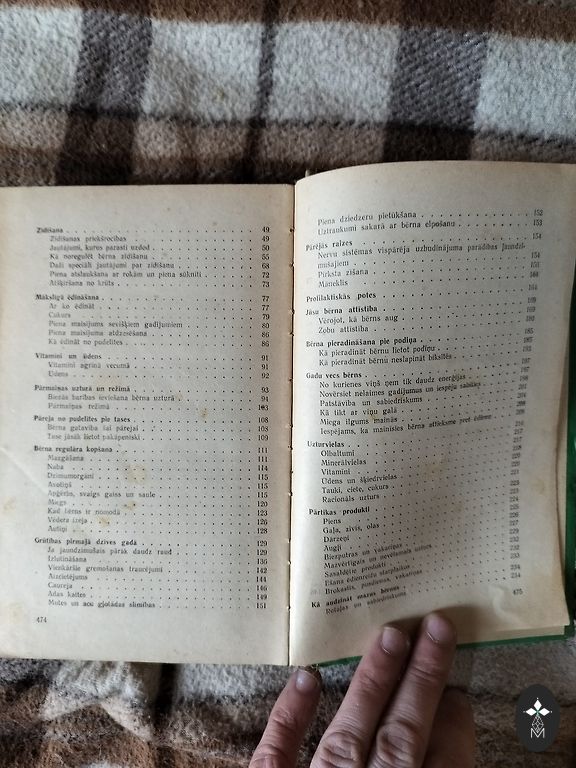 Zīdīšana 49
Zīdīšanas priekšrocības 49
Jautājumi, kurus parasti uzdod 50
Kā noregulēt bērna zīdīšanu 55
Daži speciāli jautājumi par zīdīšanu 68
Piena atslaukšana ar rokām un piena sūknīti 72
Atšķiršana no krūts 73
Mākslīgā ēdināšana 77
Ar ko ēdināt 77
Cukurs 79
Piena maisījums sevišķiem gadījumiem 80
Piena maisījuma atdzesēšana 86
Kā ēdināt no pudelītes 86
Vitamīni un ūdens 91
Vitamīni agrīnā vecumā 91
Ūdens 92
Pārmaiņas uzturā un režīmā 93
Biezās barības ieviešana bērna uzturā 94
Pārmaiņas režīmā 103
Pāreja no pudelītes pie tases 108
Bērna gatavība šai pārejai 108
Tase jāsāk lietot pakāpeniski 109
Bērna regulāra kopšana 111
Mazgāšana 111
Naba 114
Dzimumorgāni 115
Avotiņš 115
Apģērbs, svaigs gaiss un saule 115
Miegs 120
Kad bērns ir nomodā 123
Vēdera izeja 126
Autiņi 128
Grūtības pirmajā dzīves gadā 129
Ja jaundzimušais pārāk daudz raud 129
Izlutināšana 135
Vienkāršie gremošanas traucējumi 142
Aizcietējums 144
Caureja 146
Ādas kaites 149
Mutes un acu gļotādas slimības 151
474
Piena dziedzeru pietūkšana 152
Uztraukumi sakarā ar bērna elpošanu 153
Pārējās raizes 154
Nervu sistēmas vispārējā uzbudinājuma parādības jaundzi-
mušajiem 154
Pirksta zīšana 155
Māneklis
Profilaktiskās potes 164
Jūsu bērna attīstība 169
Vērojot, kā bērns aug 169
Zobu attīstība
Bērna pieradināšana pie podiņa 185
Kā pieradināt bērnu lietot podiņu
Kā pieradināt bērnu neslapināt biksītēs
Gadu vecs bērns 197
No kurienes viņš ņem tik daudz enerģijas
Novērsiet nelaimes gadījumus un iespēju sabīties
Patstāvība un sabiedriskums
Kā tikt ar viņu galā
Miega ilgums mainās
Iespējams, ka mainīsies bērna attieksme pret ēdienu
Uzturvielas
Olbaltumi
Minerālvielas
Vitamīni
Ūdens un šķiedrvielas
Tauki, ciete, cukurs
Racionāls uzturs
Pārtikas produkti
Piens
Gaļa, zivis, olas
Dārzeņi
Augļi
Biezputras un vakariņas
Mazvērtīgais un nevēlamais uzturs
Sasaldētie produkti
Ēšana ēdienreižu starplaikos
Brokastis, pusdienas, vakariņas
Kā audzināt mazus bērnus
Rotaļas un sabiedriskums
475